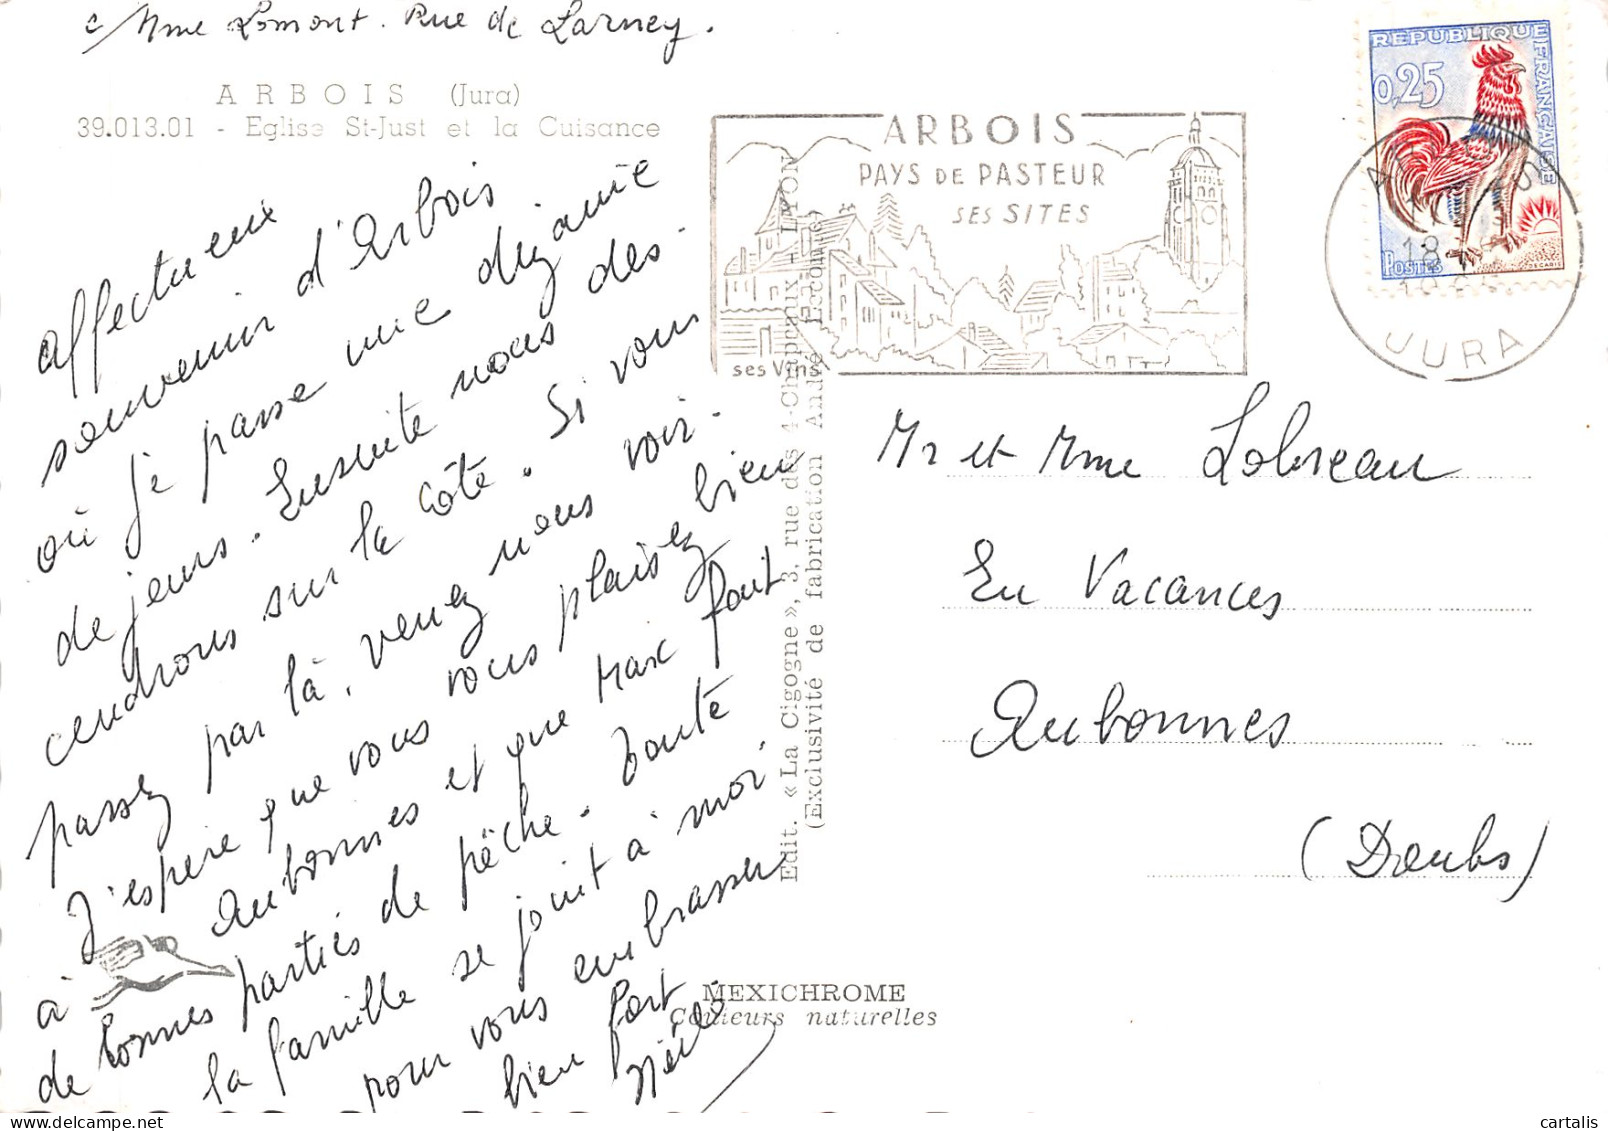 c/ Mme Lomont. Rue de Larney.
ARBOIS (Jura)
39.013.01 - Eglise St-Just et la Cuisance
affectueux
souvenir d'Arbois
où je passe une dizaine
de jours. Ensuite nous des-
cendrons sur la côte. Si vous
passez par là, venez nous voir.
J'espère que vous vous plaisez bien
à Aubonnes et que Marc fait
de bonnes parties de pêche. Toute
la famille se joint à moi
pour vous embrasser
bien fort
ARBOIS
PAYS DE PASTEUR
SES SITES
ses Vins
REPUBLIQUE FRANÇAISE
0,25
POSTES
DECARIS
ARBOIS
18
JURA
Edit. « La Cigogne », 3, rue des 4-Chapeaux - LYON
(Exclusivité de fabrication André Leconte)
Mr et Mme Lobreau
En Vacances
Aubonnes
(Doubs)
MEXICHROME
Couleurs naturelles
cartalis
delcampe.net